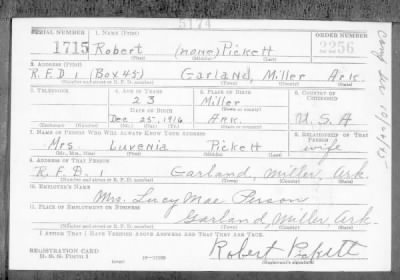 5174
SERIAL NUMBER 1. NAME (Print) ORDER NUMBER
1715 Robert (none) Pickett 2256
(First) (Middle) (Last)
2. ADDRESS (Print)
R.F.D 1 (Box 45) Garland, Miller Ark.
(Number and street or R. F. D. number) (Town) (County) (State)
3. TELEPHONE 4. AGE IN YEARS 5. PLACE OF BIRTH 6. COUNTRY OF CITIZENSHIP
23 Miller
DATE OF BIRTH (Town or county)
Dec 25, 1916 Ark. U.S.A
(Exchange) (Number) (Mo.) (Day) (Yr.) (State or country)
7. NAME OF PERSON WHO WILL ALWAYS KNOW YOUR ADDRESS 8. RELATIONSHIP OF THAT PERSON
Mrs Luvenia Pickett wife
(Mr., Mrs., Miss) (First) (Middle) (Last)
9. ADDRESS OF THAT PERSON
R.F.D. 1 Garland, Miller, Ark.
(Number and street or R. F. D. number) (Town) (County) (State)
10. EMPLOYER'S NAME
Mrs. Lucy Mae Person
11. PLACE OF EMPLOYMENT OR BUSINESS
Garland, Miller, Ark.
(Number and street or R. F. D. number) (Town) (County) (State)
I AFFIRM THAT I HAVE VERIFIED ABOVE ANSWERS AND THAT THEY ARE TRUE.
REGISTRATION CARD
D. S. S. FORM 1
Robert Pickett
(Registrant's signature)